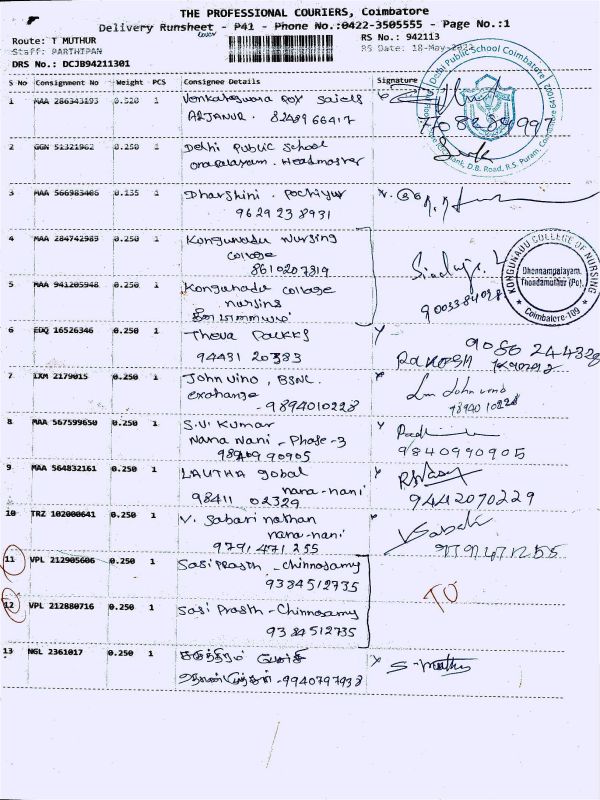 THE PROFESSIONAL COURIERS, Coimbatore
Delivery Runsheet - P41 - Phone No.:0422-3505555 - Page No.:1
Route: T MUTHUR
RS No.: 942113
Staff: PARTHIPAN
RS Date: 18-May-2022
DRS No.: DCJB94211301
S No Consignment No Weight PCS Consignee Details Signature
1 MAA 286343193 0.520 1
ARJANUR. 8248966417
7708209997
2 GGN 51321962 0.250 1 Delhi Public School
Headmaster
Delhi Public School Coimbatore
D.B. Road, R.S. Puram, Coimbatore 641002
3 MAA 566983406 0.135 1 Dharshini.
9629238931
4 MAA 284742989 0.250 1 Kongunadu Nursing
college
8610207819
KONGUNADU COLLEGE OF NURSING
Dhennampalayam,
Thondamuthur (Po),
Coimbatore-109
5 MAA 941205948 0.250 1 Kongunadu college
nursing
9003384028
6 EDQ 16526346 0.250 1 Theva
94431 20383
RAKESH
9080 244328
7 IXM 2179015 0.250 1 John vino, BSNL
exchange
- 9894010228
9894010228
8 MAA 567599650 0.250 1 S.V. Kumar
Nana Nani - Phase-3
9840990905
9840990905
9 MAA 564832161 0.250 1 LALITHA gobal
nana-nani
98411 02329
9442070229
10 TRZ 102000641 0.250 1 V. Sabari nathan
nana-nani
9791471255
11 VPL 212905606 0.250 1 Sasi Prasth - Chinnasamy
9384512735
TO
12 VPL 212880716 0.250 1 Sasi Prasth - Chinnasamy
9384512735
13 NGL 2361017 0.250 1
- 9940797938